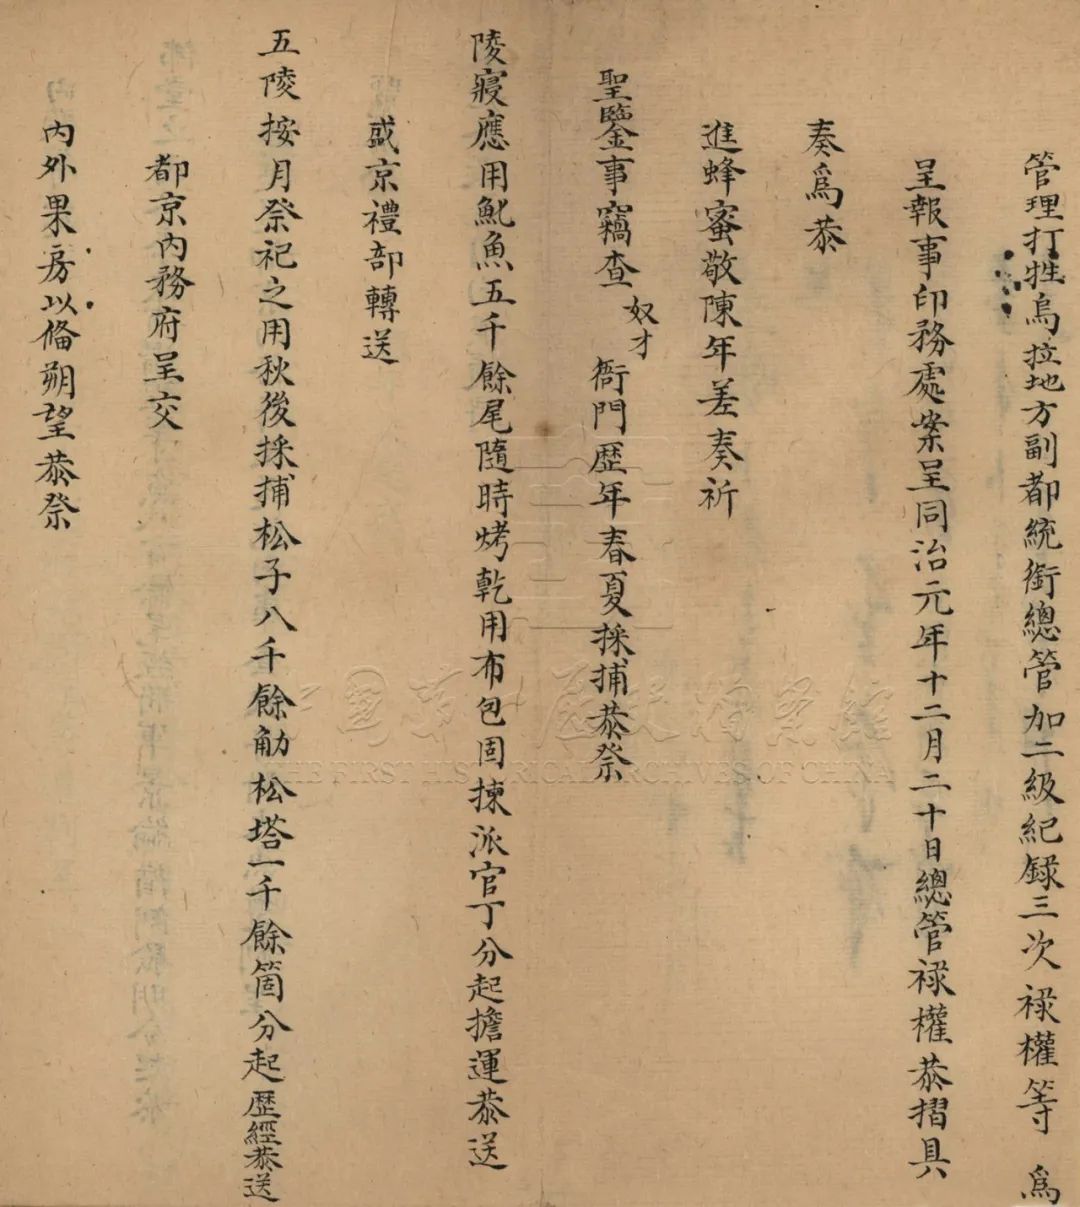 管理打牲烏拉地方副都統銜總管加二級紀錄三次祿權等　爲
呈報事印務處案呈同治元年十二月二十日總管祿權恭摺具
奏爲恭
進蜂蜜敬陳年差奏祈
聖鑒事竊查奴才衙門歷年春夏採捕恭祭
陵寢應用魫魚五千餘尾隨時烤乾用布包固揀派官丁分起擔運恭送
盛京禮部轉送
五陵按月祭祀之用秋後採捕松子八千餘觔松塔一千餘箇分起歷經恭送
都京內務府呈交
內外果房以俻朔望恭祭
中國第一歷史檔案館
THE FIRST HISTORICAL ARCHIVES OF CHINA